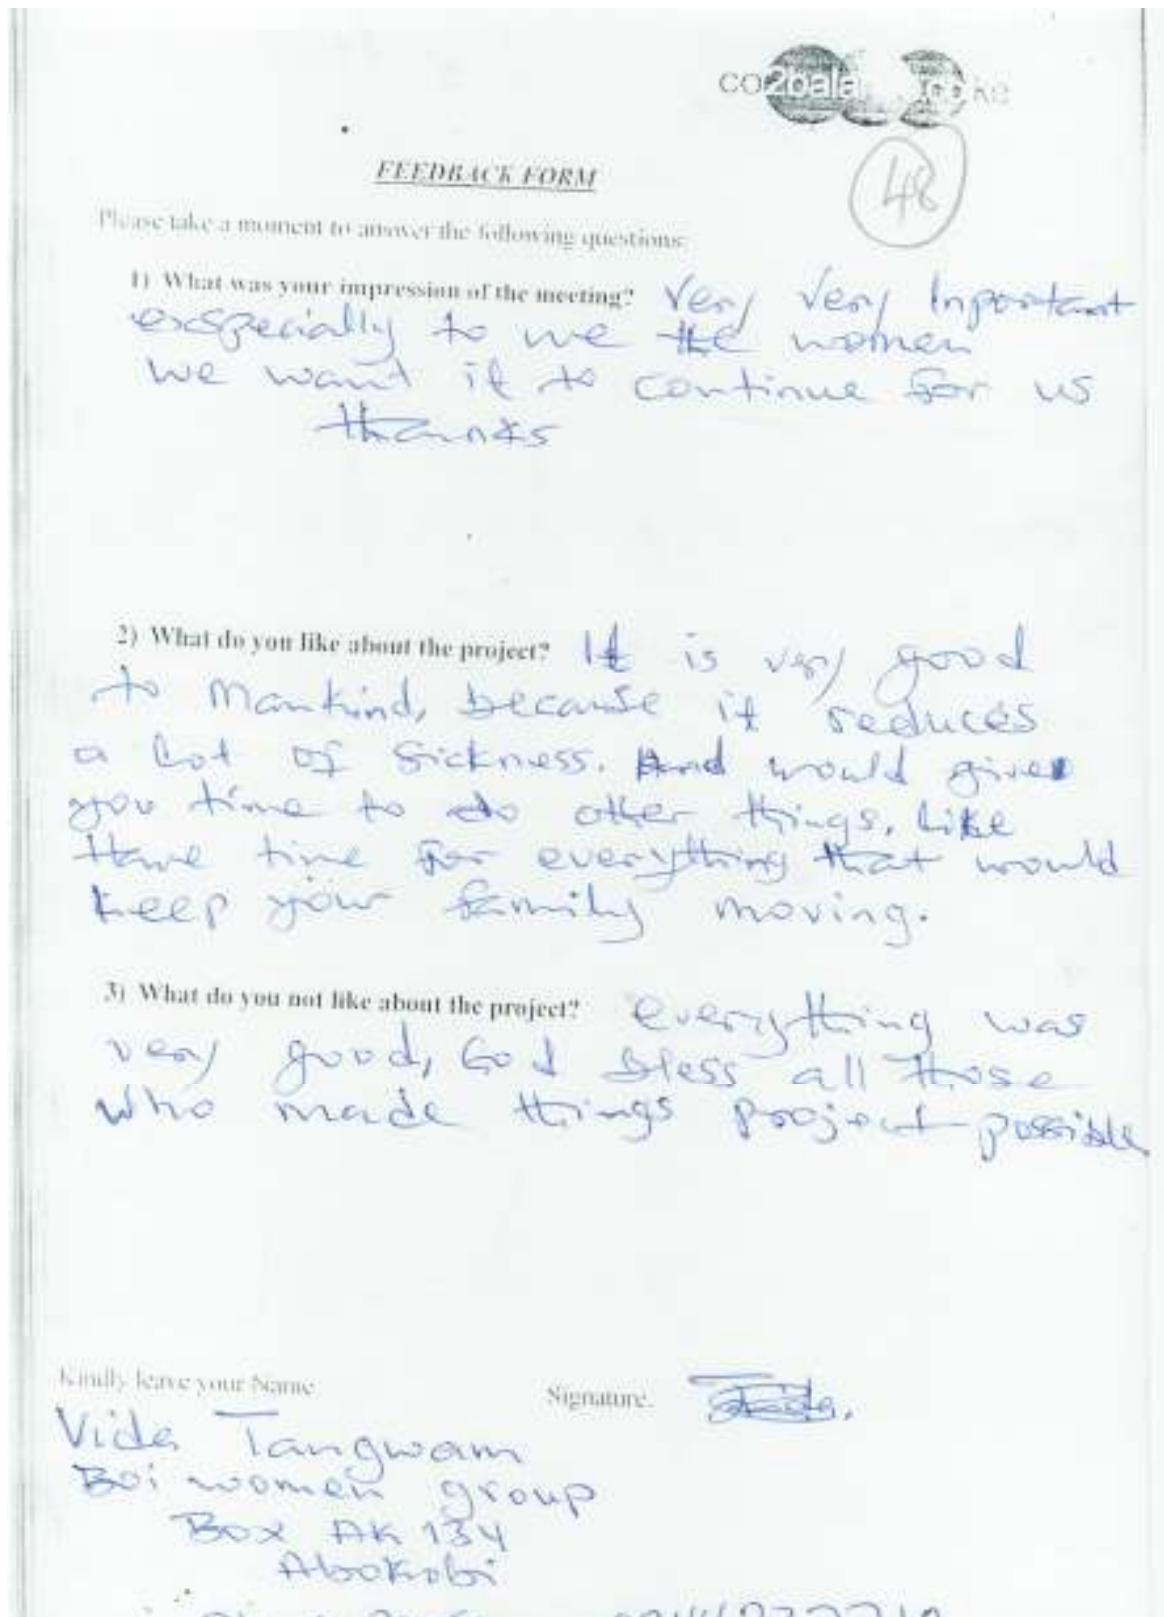 co2balance.co.ke
48
FEEDBACK FORM
Please take a moment to answer the following questions:
1) What was your impression of the meeting? Very very Inportant
exspecially to we the women
we want it to continue for us
thanks
2) What do you like about the project? It is very good
to Mankind, because it reduces
a lot of sickness. And would give
you time to do other things, like
Have time for everything that would
keep your family moving.
3) What do you not like about the project? everything was
very good, God bless all those
who made things project possible
Kindly leave your Name
Signature.
Vida Tangwam
Boi women group
Box AK 134
Abokobi